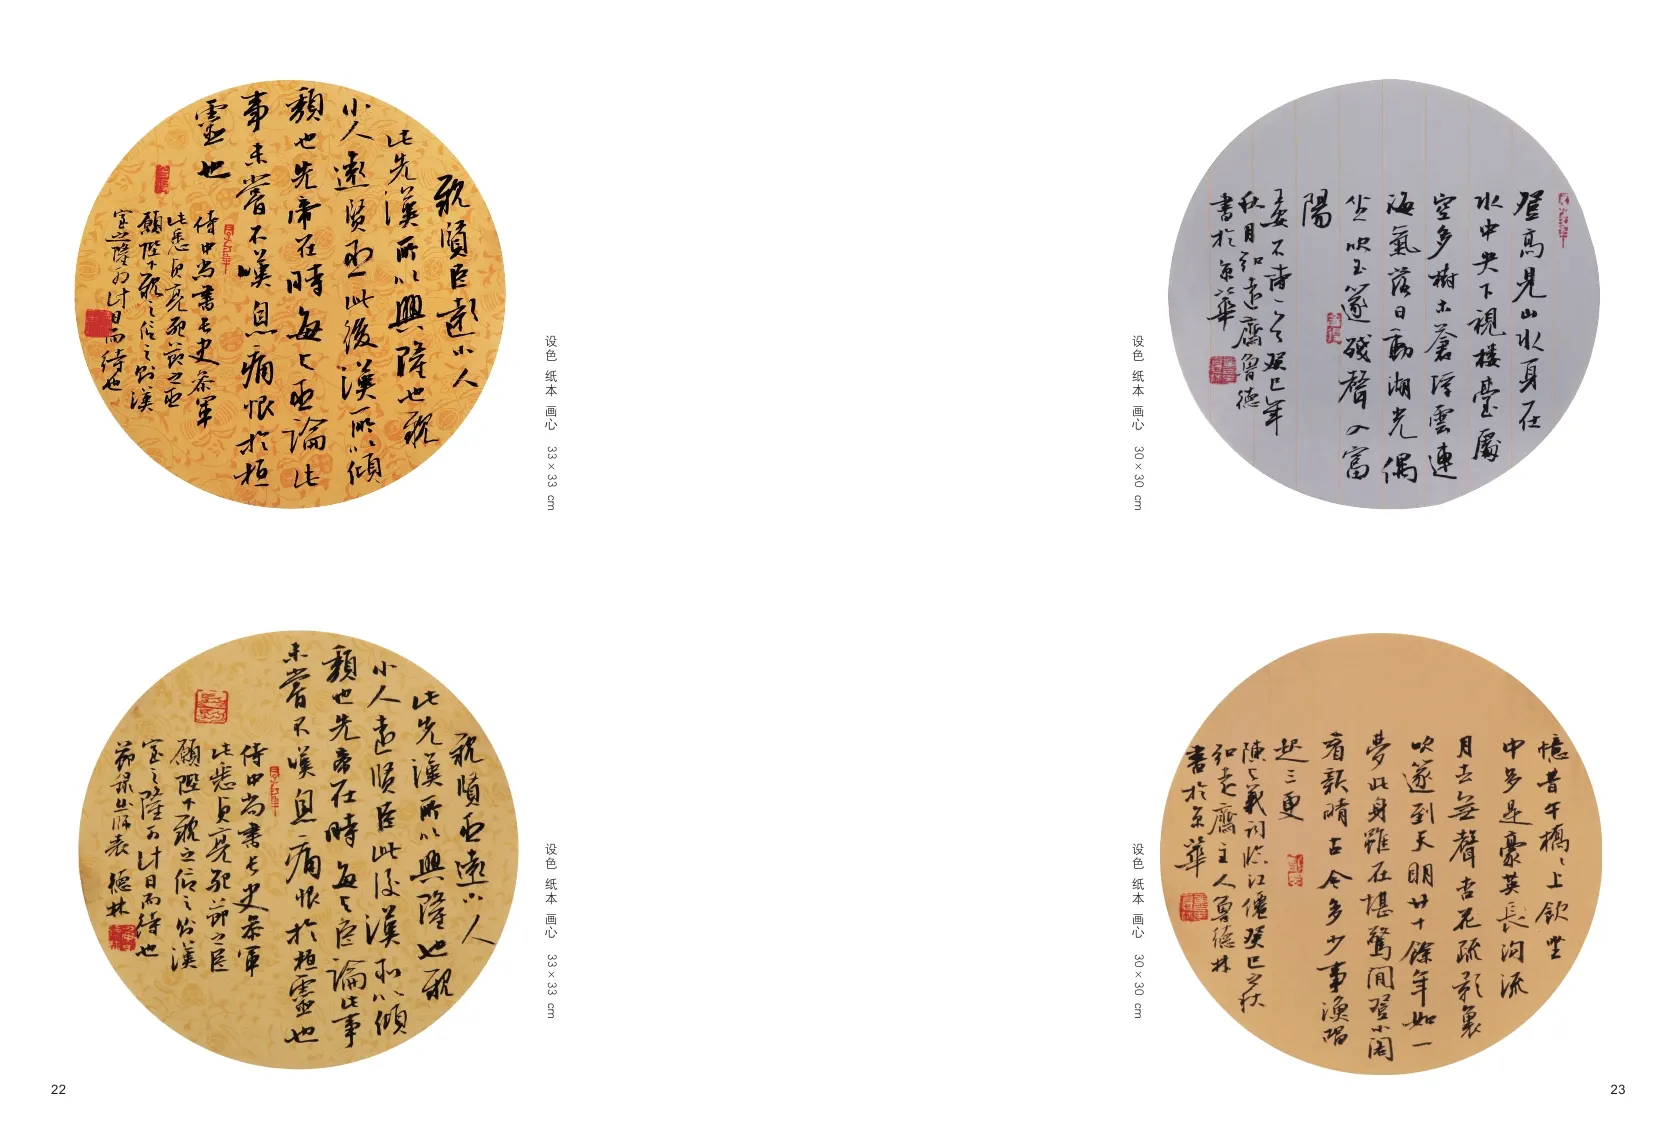 親賢臣遠小人
此先漢所以興隆也親
小人遠賢臣此後漢所以傾
頹也先帝在時每與臣論此
事未嘗不嘆息痛恨於桓
靈也
侍中尚書長史參軍
此悉貞亮死節之臣
願陛下親之信之則漢
室之隆可計日而待也
设色 纸本 画心 33×33 cm
親賢臣遠小人
此先漢所以興隆也親
小人遠賢臣此後漢所以傾
頹也先帝在時每與臣論此事
未嘗不嘆息痛恨於桓靈也
侍中尚書長史參軍
此悉貞亮死節之臣
願陛下親之信之則漢
室之隆可計日而待也
節錄出師表 德林
设色 纸本 画心 33×33 cm
22
登高見山水身在
水中央下視樓臺處
空多樹木蒼浮雲連
海氣落日動湖光偶
坐吹玉篴殘聲入富
陽
詩一首癸巳年
秋月弘遠齋魯德
書於京華
设色 纸本 画心 30×30 cm
憶昔午橋橋上飲坐
中多是豪英長溝流
月去無聲杏花疏影裏
吹篴到天明廿十餘年如一
夢此身雖在堪驚閒登小閣
看新晴古今多少事漁唱
起三更
陳與義詞臨江僊癸巳之秋
弘遠齋主人魯德林
書於京華
设色 纸本 画心 30×30 cm
23